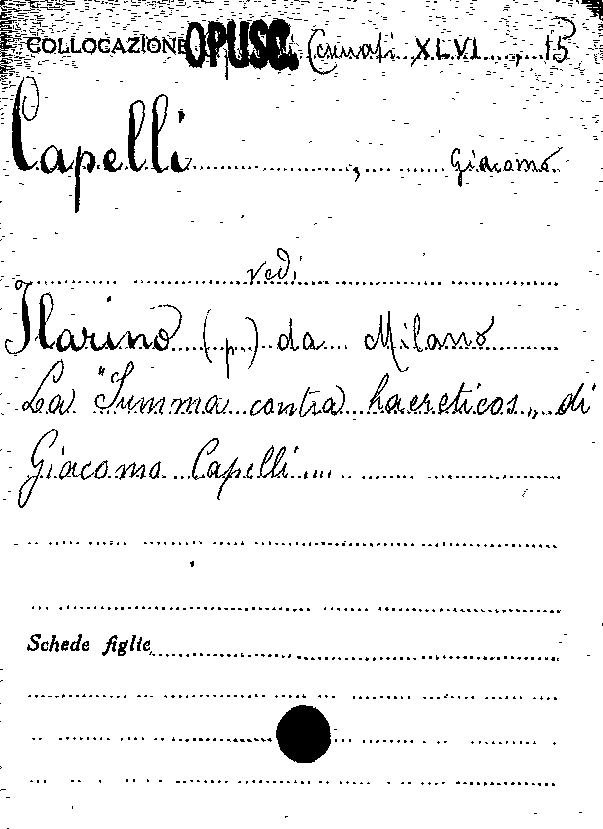 COLLOCAZIONE OPUSC. XLVI, 15
Capelli, Giacomo
vedi
Ilarino (p) da Milano
La "Summa contra haereticos„ di
Giacomo Capelli....
Schede figlie